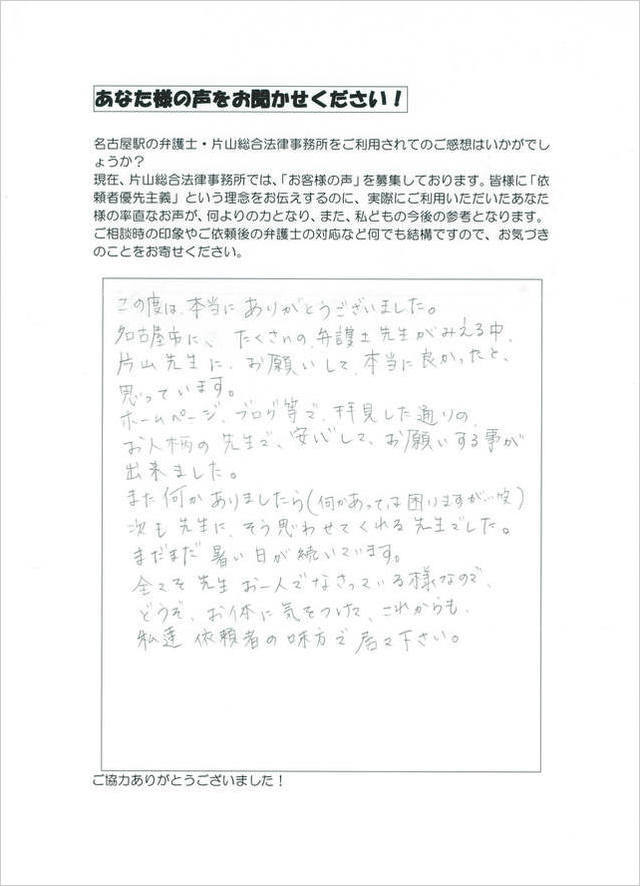 あなた様の声をお聞かせください！
名古屋駅の弁護士・片山総合法律事務所をご利用されてのご感想はいかがでし
ょうか？
現在、片山総合法律事務所では、「お客様の声」を募集しております。皆様に「依
頼者優先主義」という理念をお伝えするのに、実際にご利用いただいたあなた
様の率直なお声が、何よりの力となり、また、私どもの今後の参考となります。
ご相談時の印象やご依頼後の弁護士の対応など何でも結構ですので、お気づき
のことをお寄せください。
この度は、本当にありがとうございました。
名古屋市に、たくさんの弁護士先生がみえる中、
片山先生に、お願いして、本当に良かったと、
思っています。
ホームページ、ブログ等で、拝見した通りの、
お人柄の先生で、安心して、お願いする事が
出来ました。
また何かありましたら(何かあっては困りますが…笑)
次も先生に、そう思わせてくれる先生でした。
まだまだ暑い日が続いています。
全てを先生お一人でなさっている様なので、
どうぞ、お体に気をつけて、これからも、
私達依頼者の味方で居て下さい。
ご協力ありがとうございました！